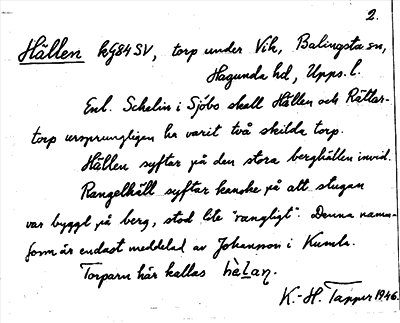 2.
Hällen kG84SV, torp under Vik, Balingsta sn,
Hagunda hd, Upps. l.
Enl. Schelin i Sjöbo skall Hällen och Rättar-
torp ursprungligen ha varit två skilda torp.
Hällen syftar på den stora berghällen invid.
Rangelhäll syftar kanske på att stugan
var byggt på berg, stod lite "rangligt". Denna namn-
form är endast meddelad av Johansson i Kumla.
Torparn här kallas
K.-H. Tapper 1946.